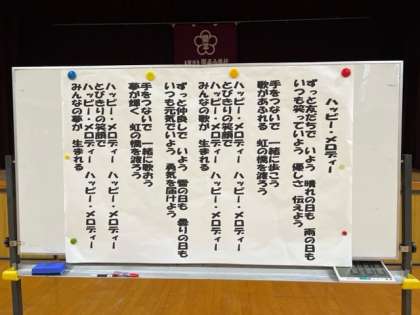 ハッピー・メロディー
ずっと友だちで いよう 晴れの日も 雨の日も
いつも笑っていよう 優しさ 伝えよう
手をつないで 一緒に歩こう
歌があふれる 虹の橋を渡ろう
ハッピー・メロディー ハッピー・メロディー
とびきりの笑顔で
みんなの歌が 生まれる
ずっと仲良しで いよう 雪の日も 曇りの日も
いつも元気でいよう 勇気を届けよう
手をつないで 一緒に歌おう
夢が輝く 虹の橋を渡ろう
ハッピー・メロディー ハッピー・メロディー
とびきりの笑顔で
みんなの夢が 生まれる